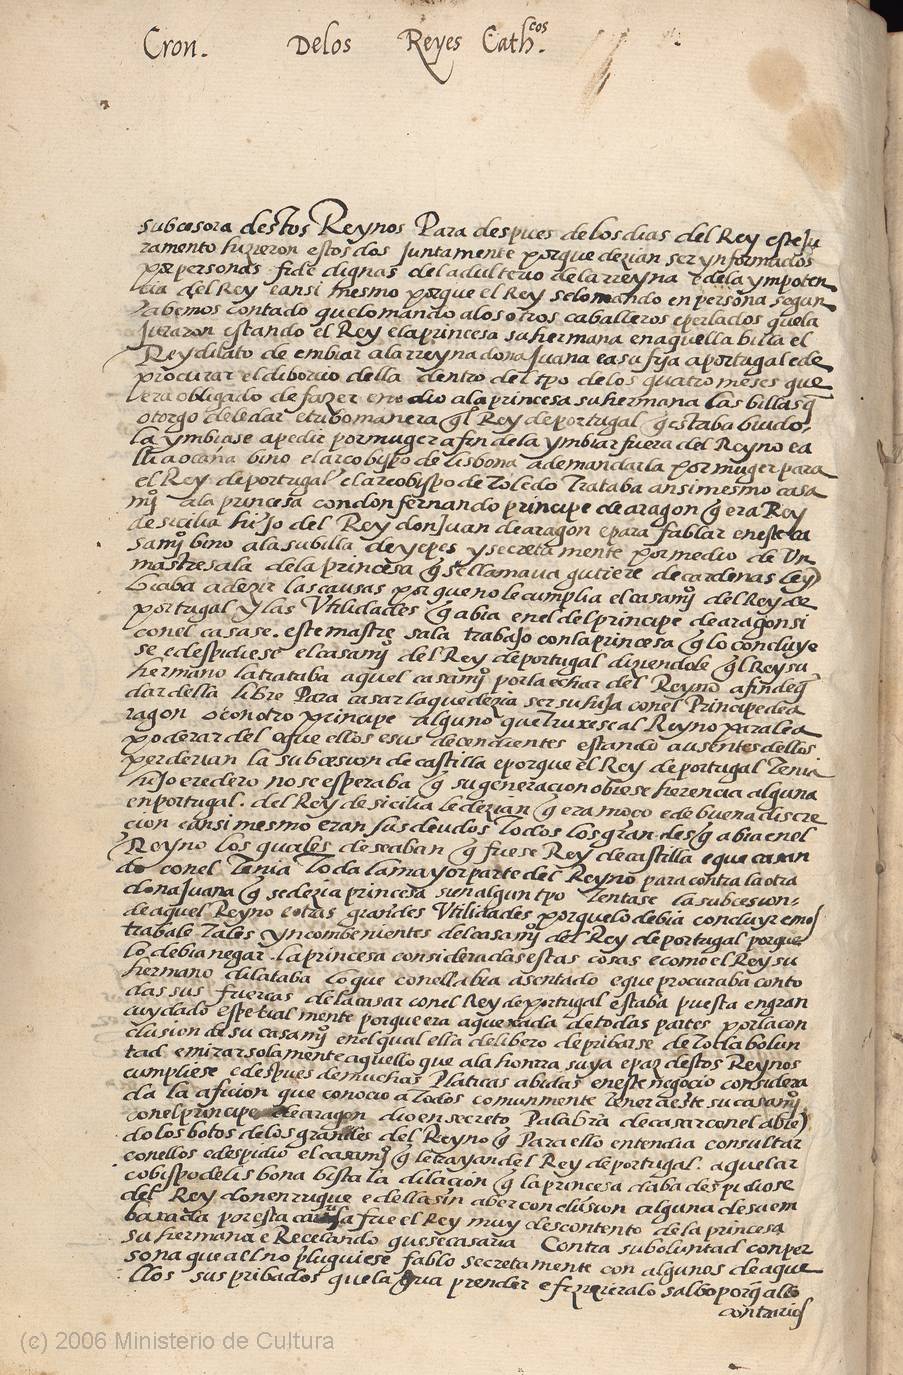 Cron. Delos Reyes Cath.cos
subcesora destos Reynos Para despues de los dias del Rey este Ju
ramento hizieron estos dos Juntamente porque dezian ser ynformados
por personas fide dignas del adulterio de la rreyna e de la ympoten
cia del Rey e ansi mesmo porque el Rey se lo mando en persona segun
habemos contado que lo mando a los otros caballeros e perlados que la
Juraron estando el Rey e la princesa su hermana en aquella billa el
Rey dilato de embiar a la rreyna dona Juana e a su fija a portugal e de
procurar el diborcio della dentro del tpo de los quatro meses que
era obligado de fazer e no dio a la princesa su hermana las billas q
otorgo de le dar e tubo manera ql Rey de portugal q estaba biudo,
la ymbiase a pedir por muger a fin de la ymbiar fuera del Reyno e a
lli a ocaña bino el arcobispo de lisbona a demandarla por muger para
el Rey de portugal el arcobispo de Toledo Trataba ansi mesmo casa
mio a la princesa con don fernando principe de aragon q era Rey
de sicilia hijo del Rey don Juan de aragon e para fablar en este ca
samio bino a la su billa de yepes y secreta mente por medio de Un
mastresala de la princesa q se llamaua gutierre de cardenas le yn
biaba a dezir las causas por que no le cumplia el casamio del Rey de
portugal y las Vtilidades q abia en el del principe de aragon si
con el casase. este mastre sala trabajo con la princesa q lo concluye
se e despidiese el casamio del Rey de portugal diziendole ql Rey su
hermano la trataba aquel casamio por la echar del Reyno a fin de q
dar della libre Para casar la que dezia ser su hija con el Principe de a
ragon o con otro principe alguno que truxese al Reyno para le a
poderar del e que ellos e sus decendientes estando ausentes dellos
perderian la subcesion de castilla e porque el Rey de portugal Tenia
hijo eredero no se esperaba q su generacion obiese herencia alguna
en portugal. del Rey de sicilia le dezian q era moco e de buena discre
cion e ansi mesmo eran sus deudos Todos los grandes q abia en el
Reyno los quales deseaban q fuese Rey de castilla e que casan
do con el Tenia Toda la mayor parte del Reyno para contra la otra
dona Juana q se dezia princesa si en algun tpo Tentase la subcesion
de aquel Reyno e otras grandes Vtilidades por que lo debia concluyr e mos
trabale Tales yncombenientes del casamio del Rey de portugal porque
lo debia negar. la princesa consideradas estas cosas e como el Rey su
hermano dilataba lo que con ella abia asentado e que procuraba con to
das sus fuercas de la casar con el Rey de portugal estaba puesta en gran
cuydado espetial mente porque era aquexada de todas partes por la con
clusion de su casamio en el qual ella delibero de pribarse de Toda bolun
tad e mirar solamente aquello que a la honrra suya e paz destos Reynos
cumpliese e despues de muchas Platicas abidas en este negocio considera
da la aficion que conocio a Todos comunmente Tener a este su casamio
con el principe de aragon dio en secreto Palabra de casar con el abien
do los botos de los grandes del Reyno q Para ello entendia consultar
con ellos e despidio el casamio q le trayan del Rey de portugal. aquel ar
cobispo de lisbona bista la dilacion q la princesa daba despidiose
del Rey don enrrique e della sin aber conclusion alguna de su em
baxada por esta causa fue el Rey muy descontento de la princesa
su hermana e Recelando que se casaria Contra su boluntad con per
sona que a el no pluguiese fablo secretamente con algunos de aque
llos sus pribados que la qria prender e fizieralo salbo porq abio
contrarios
(c) 2006 Ministerio de Cultura